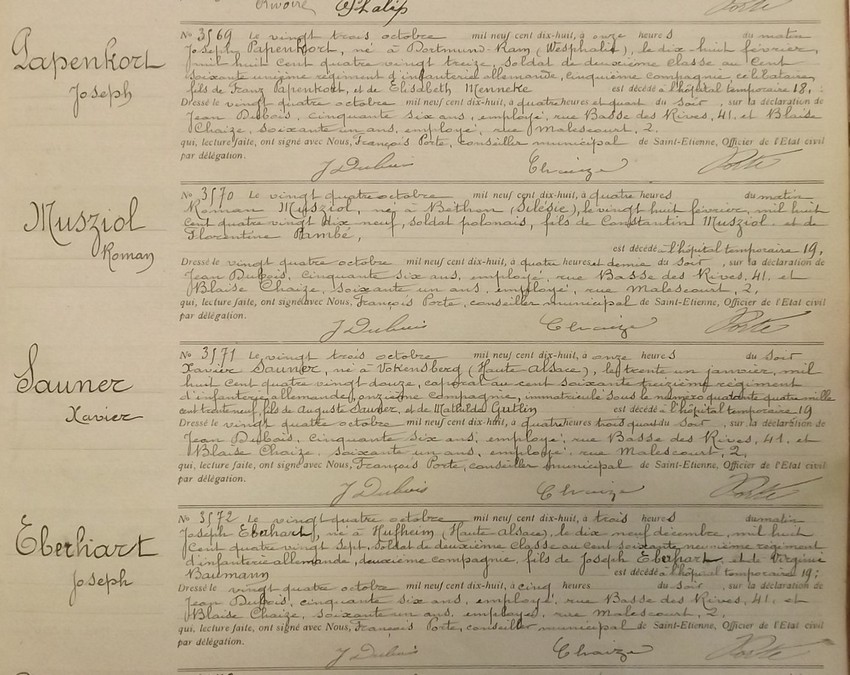 Papenkort
Joseph
No 3569 Le vingt trois octobre mil neuf cent dix-huit, à onze heures du matin
Joseph Papenkort, né à Dortmund-Ram (Westphalie), le dix huit février,
mil huit cent quatre vingt treize, soldat de deuxième classe au cent
soixante unième régiment d'infanterie allemande, cinquième compagnie célibataire,
fils de Franz Papenkort, et de Elisabeth Menneke est décédé à l'hôpital temporaire 18,
Dressé le vingt quatre octobre mil neuf cent dix-huit, à quatre heures et quart du soir, sur la déclaration de
Jean Dubois, cinquante six ans, employé, rue Basse des Rives, 41, et Blaise
Chaize, soixante un ans, employé, rue Malescourt, 2,
qui, lecture faite, ont signé avec Nous, François Porte, conseiller municipal de Saint-Etienne, Officier de l'Etat civil
par délégation.
J Dubuis Chaize Porte
Musziol
Roman
No 3570 Le vingt quatre octobre mil neuf cent dix-huit, à quatre heures du matin
Roman Musziol, né à Béthon (Silésie), le vingt huit février, mil huit
cent quatre vingt dix neuf, soldat polonais, fils de Constantin Musziol et de
Florentine Pambé,
est décédé à l'hôpital temporaire 19,
Dressé le vingt quatre octobre mil neuf cent dix-huit, à quatre heures et demie du soir, sur la déclaration de
Jean Dubois, cinquante six ans, employé, rue Basse des Rives, 41, et
Blaise Chaize, soixante un ans, employé, rue Malescourt, 2,
qui, lecture faite, ont signé avec Nous, François Porte, conseiller municipal de Saint-Etienne, Officier de l'Etat civil
par délégation.
J Dubuis Chaize Porte
Sauner
Xavier
No 3571 Le vingt trois octobre mil neuf cent dix-huit, à onze heures du soir
Xavier Sauner, né à Vokensberg (Haute-Alsace), le trente un janvier, mil
huit cent quatre vingt douze, caporal au cent soixante treizième régiment
d'infanterie allemande, onzième compagnie, immatriculé sous le numéro quarante quatre mille
cent trente neuf, fils de Auguste Sauner, et de Mathilde Gutlin est décédé à l'hôpital temporaire 19
Dressé le vingt quatre octobre mil neuf cent dix-huit, à quatre heures trois quart du soir, sur la déclaration de
Jean Dubois, cinquante six ans, employé, rue Basse des Rives, 41, et
Blaise Chaize, soixante un ans, employé, rue Malescourt, 2,
qui, lecture faite, ont signé avec Nous, François Porte, conseiller municipal de Saint-Etienne, Officier de l'Etat civil
par délégation.
J Dubuis Chaize Porte
Eberhart
Joseph
No 3572 Le vingt quatre octobre mil neuf cent dix-huit, à trois heures du matin
Joseph Eberhart, né à Hufheim (Haute-Alsace), le dix neuf décembre, mil huit
cent quatre vingt sept, soldat de deuxième classe au cent soixante neuvième régiment
d'infanterie allemande, deuxième compagnie, fils de Joseph Eberhart et de Virginie
Baumann est décédé à l'hôpital temporaire 19;
Dressé le vingt quatre octobre mil neuf cent dix-huit, à cinq heures du soir, sur la déclaration de
Jean Dubois, cinquante six ans, employé, rue Basse des Rives, 41, et
Blaise Chaize, soixante un ans, employé, rue Malescourt, 2,
qui, lecture faite, ont signé avec Nous, François Porte, conseiller municipal de Saint-Etienne, Officier de l'Etat civil
par délégation.
J Dubuis Chaize Porte